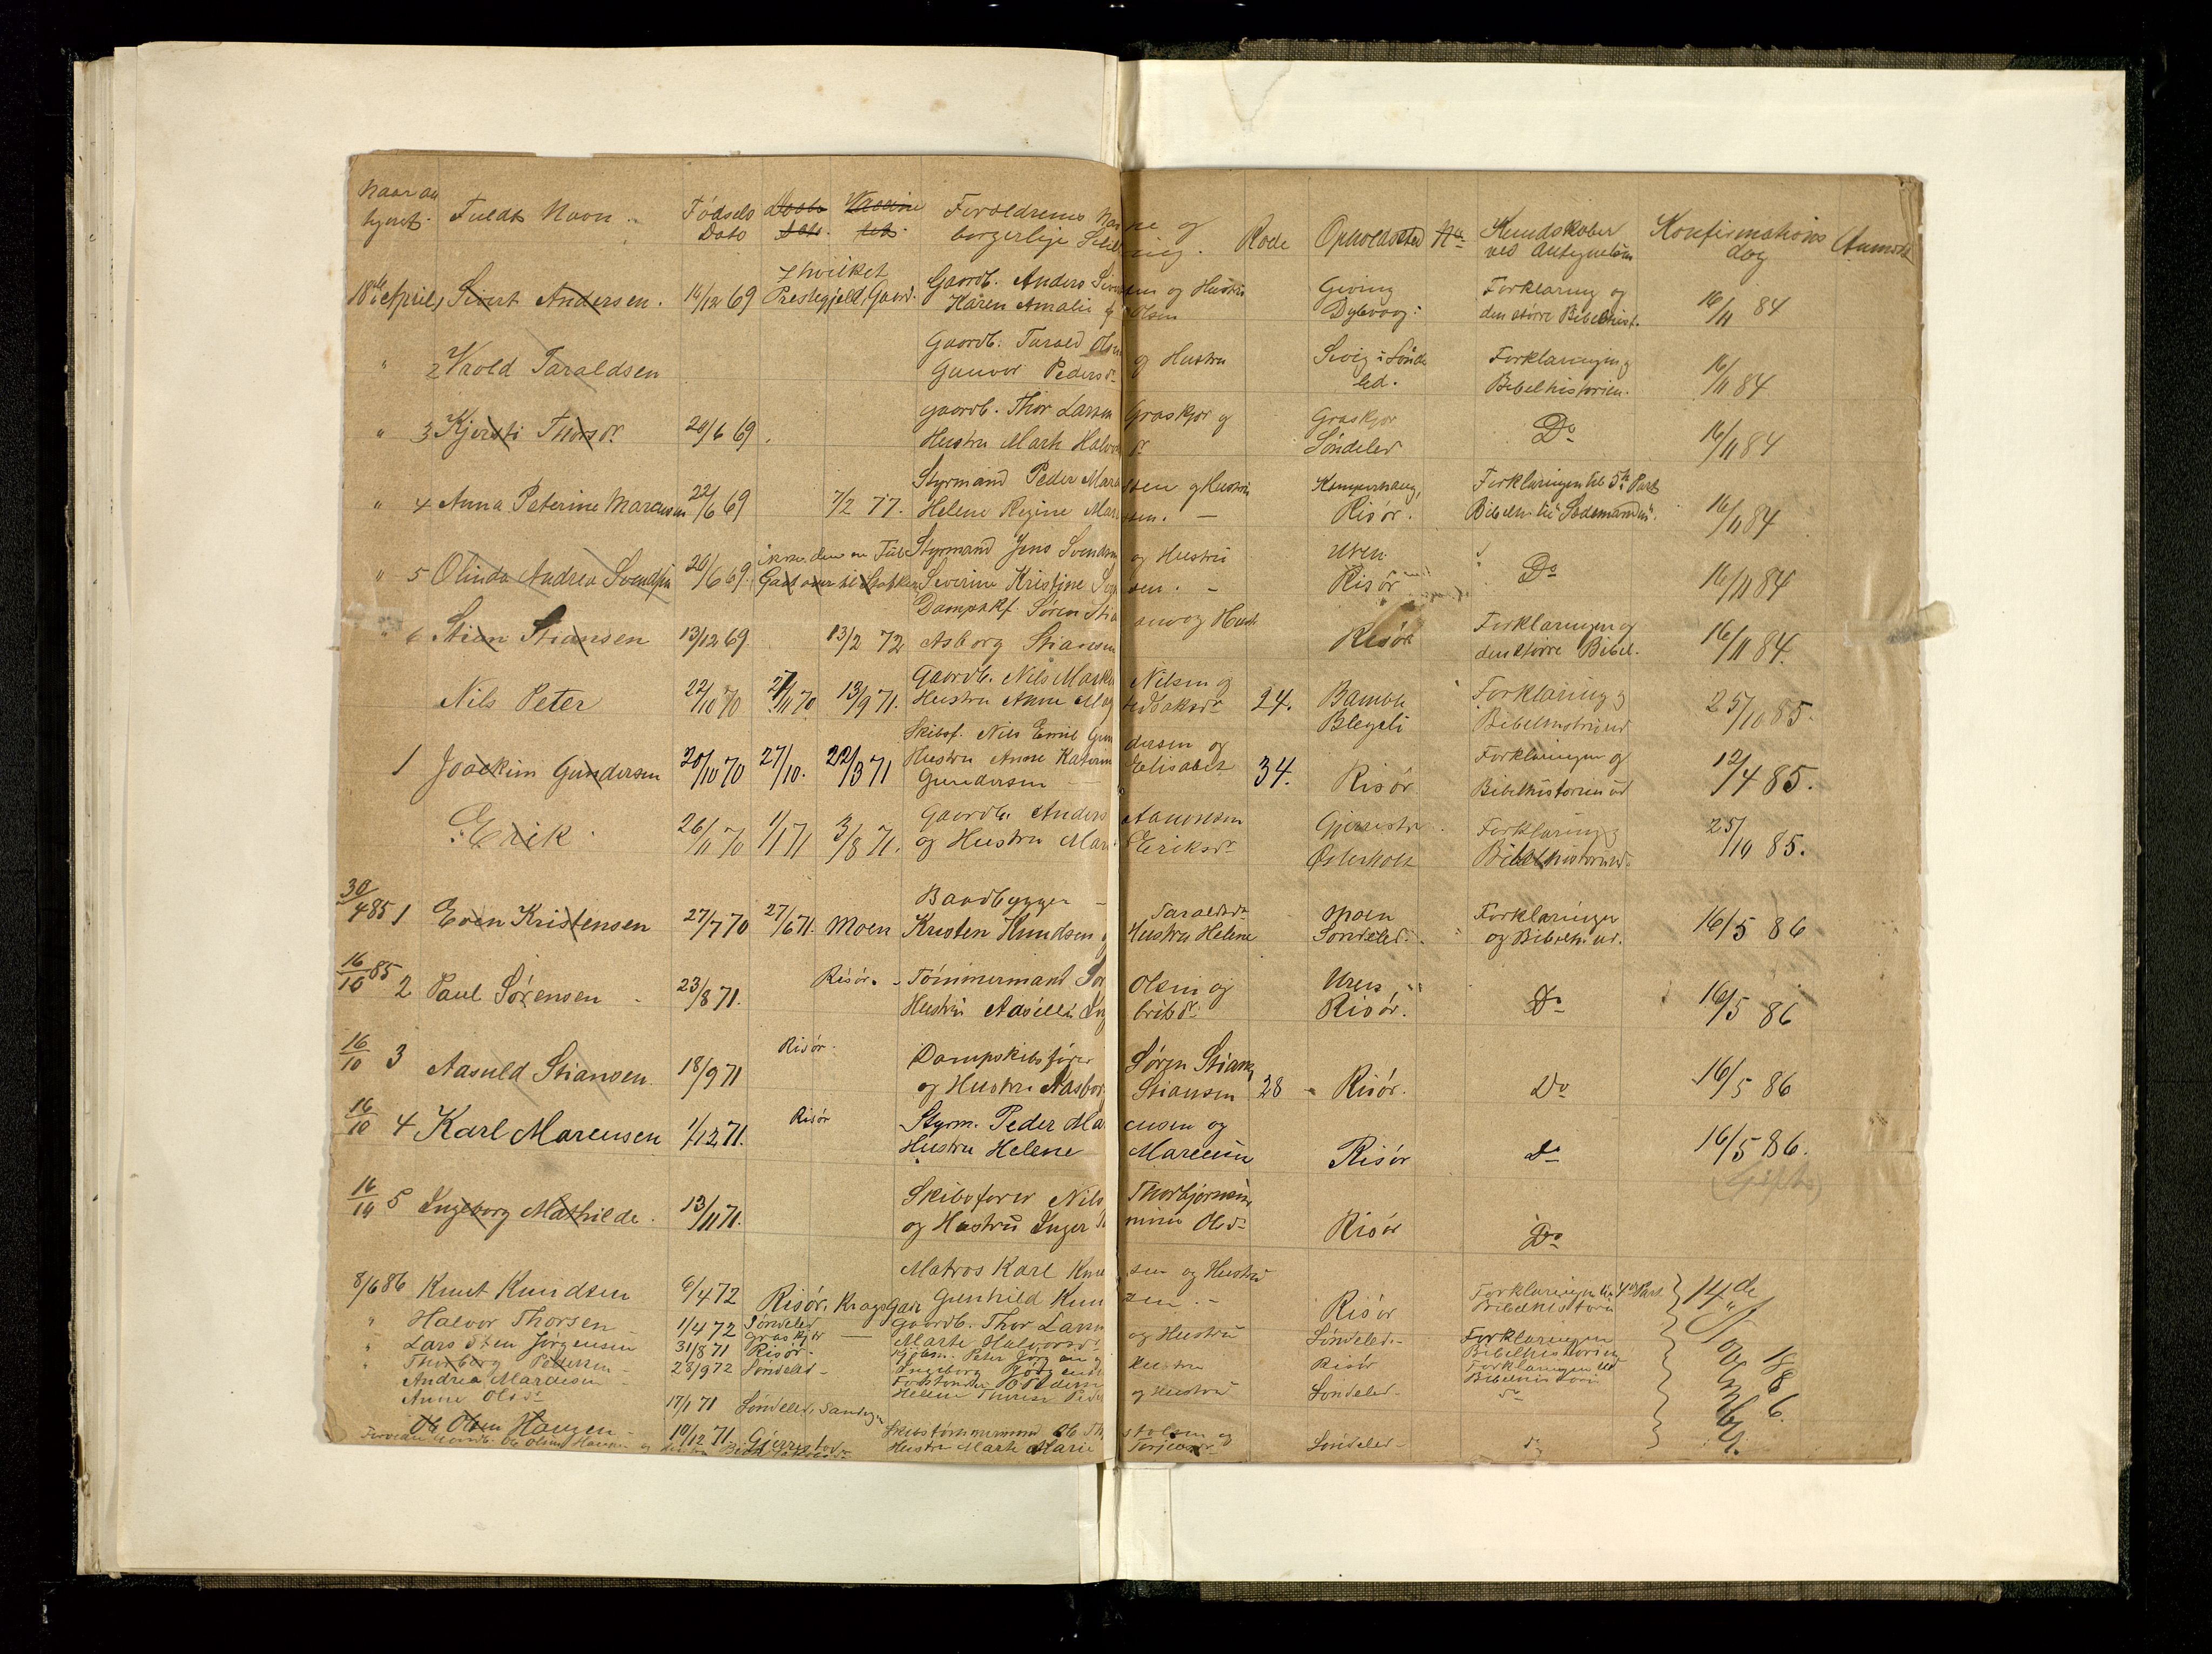 Naar an Fuldt Navn Fødsels Døbt Vaccine Forældrenes Navne og Rode Opholdssted No Kundskaber Konfirmations Anmerk
tegnet Dato borgerlige Stilling ved Antegnelsen dag
I hvilket
18de April 1 Sivert Andersen. 14/12 69 Prestegjeld, Gaard. Gaardb. Anders Siversen og Hustru Giving Forklaring og 16/11 84
Karen Amalie Olsen Dybvaag den større Bibelhist.
" 2 Vrold Taraldsen Gaardb. Tarald Olsen og Hustru Sivig i Sønde Forklaringen og 16/11 84
Gunvor Pedersdr led. Bibelhistorien.
" 3 Kjersti Thorsdr 20/6 69 Gaardb. Thor Larsen Graskjær og Graskjær Do 16/11 84
Hustru Marte Halvorsdr Søndeled
" 4 Anna Peterine Marcusen 22/6 69 7/2 77. Styrmand Peder Marcussen og Hustru Kamperhaug, Forklaringen til 5te Part 16/11 84
Helene Regine Marcusen. Risør. Bibelh. til "Sædemanden".
" 5 Olinda Andrea Svendsen 26/6 69 Styrmand Jens Svendsen og Hustru Uren Do 16/11 84
Severine Kristine Risør
" 6 Stian Stiansen 13/12 69 13/2 72 Dampskf. Søren Stiansen og Hustr Risør Forklaringen og 16/11 84.
Asborg Stiansen den større Bibel.
Nils Peter 22/10 70 27/11 70 13/9 71. Gaardb. Nils Nilsen og 24. Bamble Forklaring og 25/10 85.
Hustru Anne Isaksdr Blegeli Bibelhistrie ud
1 Joackim Gundersen 20/10 70 27/10. 22/3 71 Skibsf. Nils Emil Gundersen og 34. Risør Forklaringen og 12/4 85.
Hustru Anne Katerine Elisabet Bibelhistorien ud
Gundersen
Erik 26/11 70 1/1 71 3/8 71. Gaardb. Anders Aanonsen Gjerrestv Forklaring og 25/10 85.
og Hustru Mari Eriksdr Østerholt Bibelhistorien ud.
30/4 85 1 Even Kristensen 27/7 70 27/6 71. Moen Baadbygger Taraldsdr Moen Forklaringen 16/5 86
Kristen Knudsen og Hustru Helene Søndeled. og Bibelh. ud.
16/10 85 2 Paul Sørensen 23/8 71. Risør. Tømmermand Sør Olsen og Uren, Do 16/5 86
Hustru Risør.
16/10 3 Aasuld Stiansen. 18/9 71 Risør. Dampskibsfører Søren Stiansen 28 Risør. Do 16/5 86
og Hustru Aasborg Stiansen
16/10 4 Karl Marcusen 1/12 71. Risør Styrm. Peder Marcusen og Risør Do 16/5 86.
Hustru Helene Marcusen (Gifte)
16/10 5 Ingeborg Mathilde. 13/11 71. Skibsfører Nils Thorbjørnsen Risør Do
og Hustru Inger Olsdr
8/6 86 Knut Knudsen 6/4 72 Risør, Kragsgade Matros Karl Knudsen og Hustru Risør Forklaringen til 4de Part 14de
Gunhild Knudsen. Bibelhistorie
" Halvor Thorsen 1/4 72 Søndeled Graskjær Gaardb. Thor Larsen og Hustru Søndeled Forklaringen Novbr
Marte Halvorsdr Bibelhistorien
" Lars Sten Jørgensen 31/8 71 Risør Kjøbm. Peter Jørgensen og Hustru Risør Forklaringen ud 1886.
" Thorborg Pedersen 28/9 72 Søndeled Ingeborg Jørgensen Bibelhistori
Andrea Marcusen Pedersen og Hustru Søndeled Do
Anne Olsdr 17/1 71 Søndeled, Sandnæs Helene Therese Peder
Ole Olsen Haugen 10/12 71 Gjerrestad Skibstømmermand Ole Søndeled Do
Hustru Marte Marie Terjesdr